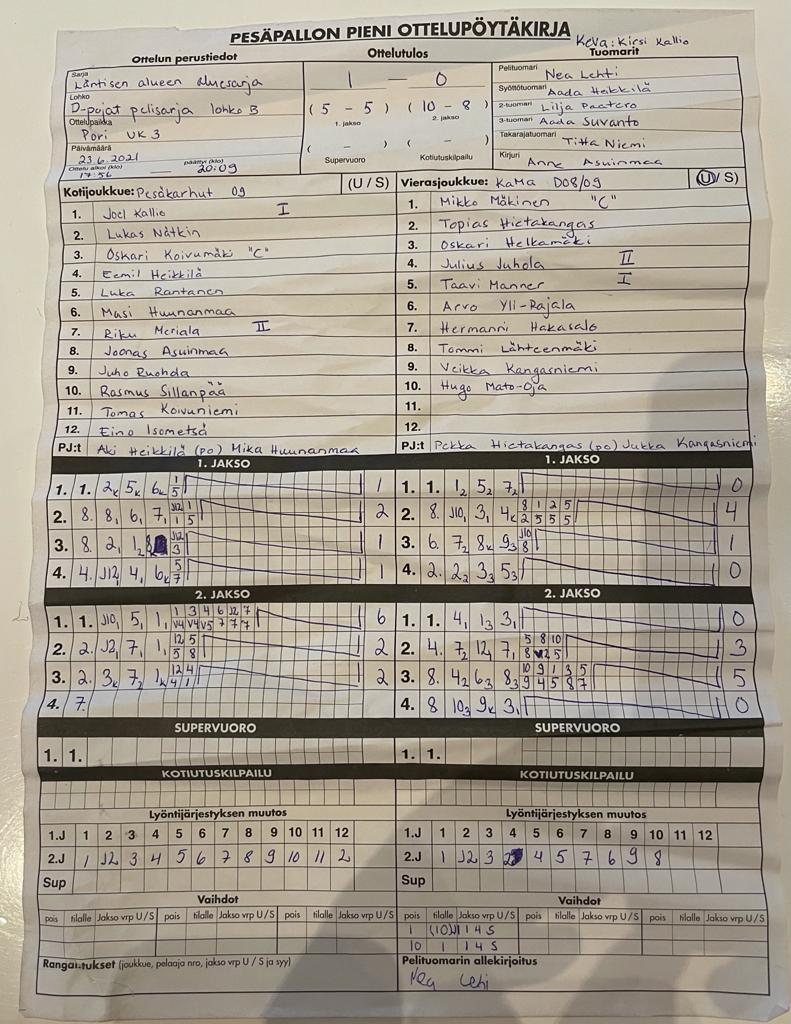 PESÄPALLON PIENI OTTELUPÖYTÄKIRJA
KeVa: Kirsi Kallio
Ottelun perustiedot Ottelutulos Tuomarit
Sarja Läntisen alueen aluesarja
Lohko D-pojat pelisarja lohko B
Ottelupaikka Pori UK 3
Päivämäärä 23.6.2021
Ottelu alkoi (klo) 17:56 päättyi (klo) 20:09
1 — 0
(5 – 5) (10 – 8)
1. jakso 2. jakso
( – ) ( – )
Supervuoro Kotiutuskilpailu
Pelituomari Nea Lehti
Syöttötuomari Aada Heikkilä
2-tuomari Lilja Paatero
3-tuomari Aada Suvanto
Takarajatuomari Titta Niemi
Kirjuri Anne Asuinmaa
Kotijoukkue: Pesäkarhut 09 (U / S)
1. Joel Kallio I
2. Lukas Nätkin
3. Oskari Koivumäki "C"
4. Eemil Heikkilä
5. Luka Rantanen
6. Masi Huunanmaa
7. Riku Meriala II
8. Joonas Asuinmaa
9. Juho Ruohda
10. Rasmus Sillanpää
11. Tomas Koivuniemi
12. Eino Isometsä
PJ:t Aki Heikkilä (po) Mika Huunanmaa
Vierasjoukkue: KaMa D08/09 (U / S)
1. Mikko Mäkinen "C"
2. Topias Hietakangas
3. Oskari Helkamäki
4. Julius Juhola II
5. Taavi Manner I
6. Arvo Yli-Rajala
7. Hermanni Hakasalo
8. Tommi Lähteenmäki
9. Veikka Kangasniemi
10. Hugo Mato-oja
11.
12.
PJ:t Pekka Hietakangas (po) Jukka Kangasniemi
1. JAKSO
1. 1. 2k 5k 6k 1 5 1
2. 8. 8, 6, 7, J12 1 1 5 2
3. 8. 2, 1, J12 3 1
4. 4. J12, 4, 6k 5 7 1
1. JAKSO
1. 1. 1₂ 5₂ 7₂ 0
2. 8. J10, 3, 4k 8 1 2 5 2 5 5 5 4
3. 6. 7₂ 8k 9₃ J10 8 1
4. 2. 2₂ 3₃ 5₃ 0
2. JAKSO
1. 1. J10, 5, 1, 1 3 4 6 J2 7 V4 V4 V5 7 7 7 6
2. 2. J2, 7, 1, 12 5 5 8 2
3. 2. 3k 7₂ 1k 12 4 4 1 2
4. 7.
2. JAKSO
1. 1. 4, 1₃ 3, 0
2. 4. 7₂ 12, 7, 5 8 10 3
3. 8. 4₂ 6₃ 8₃ 10 9 1 3 5 9 4 5 8 7 5
4. 8 10₃ 9k 3, 0
SUPERVUORO SUPERVUORO
1. 1. 1. 1.
KOTIUTUSKILPAILU KOTIUTUSKILPAILU
Lyöntijärjestyksen muutos
1.J 1 2 3 4 5 6 7 8 9 10 11 12
2.J 1 J2 3 4 5 6 7 8 9 10 11 2
Sup
Lyöntijärjestyksen muutos
1.J 1 2 3 4 5 6 7 8 9 10 11 12
2.J 1 J2 3 4 5 7 6 9 8
Sup
Vaihdot Vaihdot
pois tilalle Jakso vrp U/S pois tilalle Jakso vrp U/S pois tilalle Jakso vrp U/S
pois tilalle Jakso vrp U/S pois tilalle Jakso vrp U/S pois tilalle Jakso vrp U/S
1 (10)J 1 4 S
10 1 1 4 S
Rangaistukset (joukkue, pelaaja nro, jakso vrp U / S ja syy)
Pelituomarin allekirjoitus
Nea Lehti